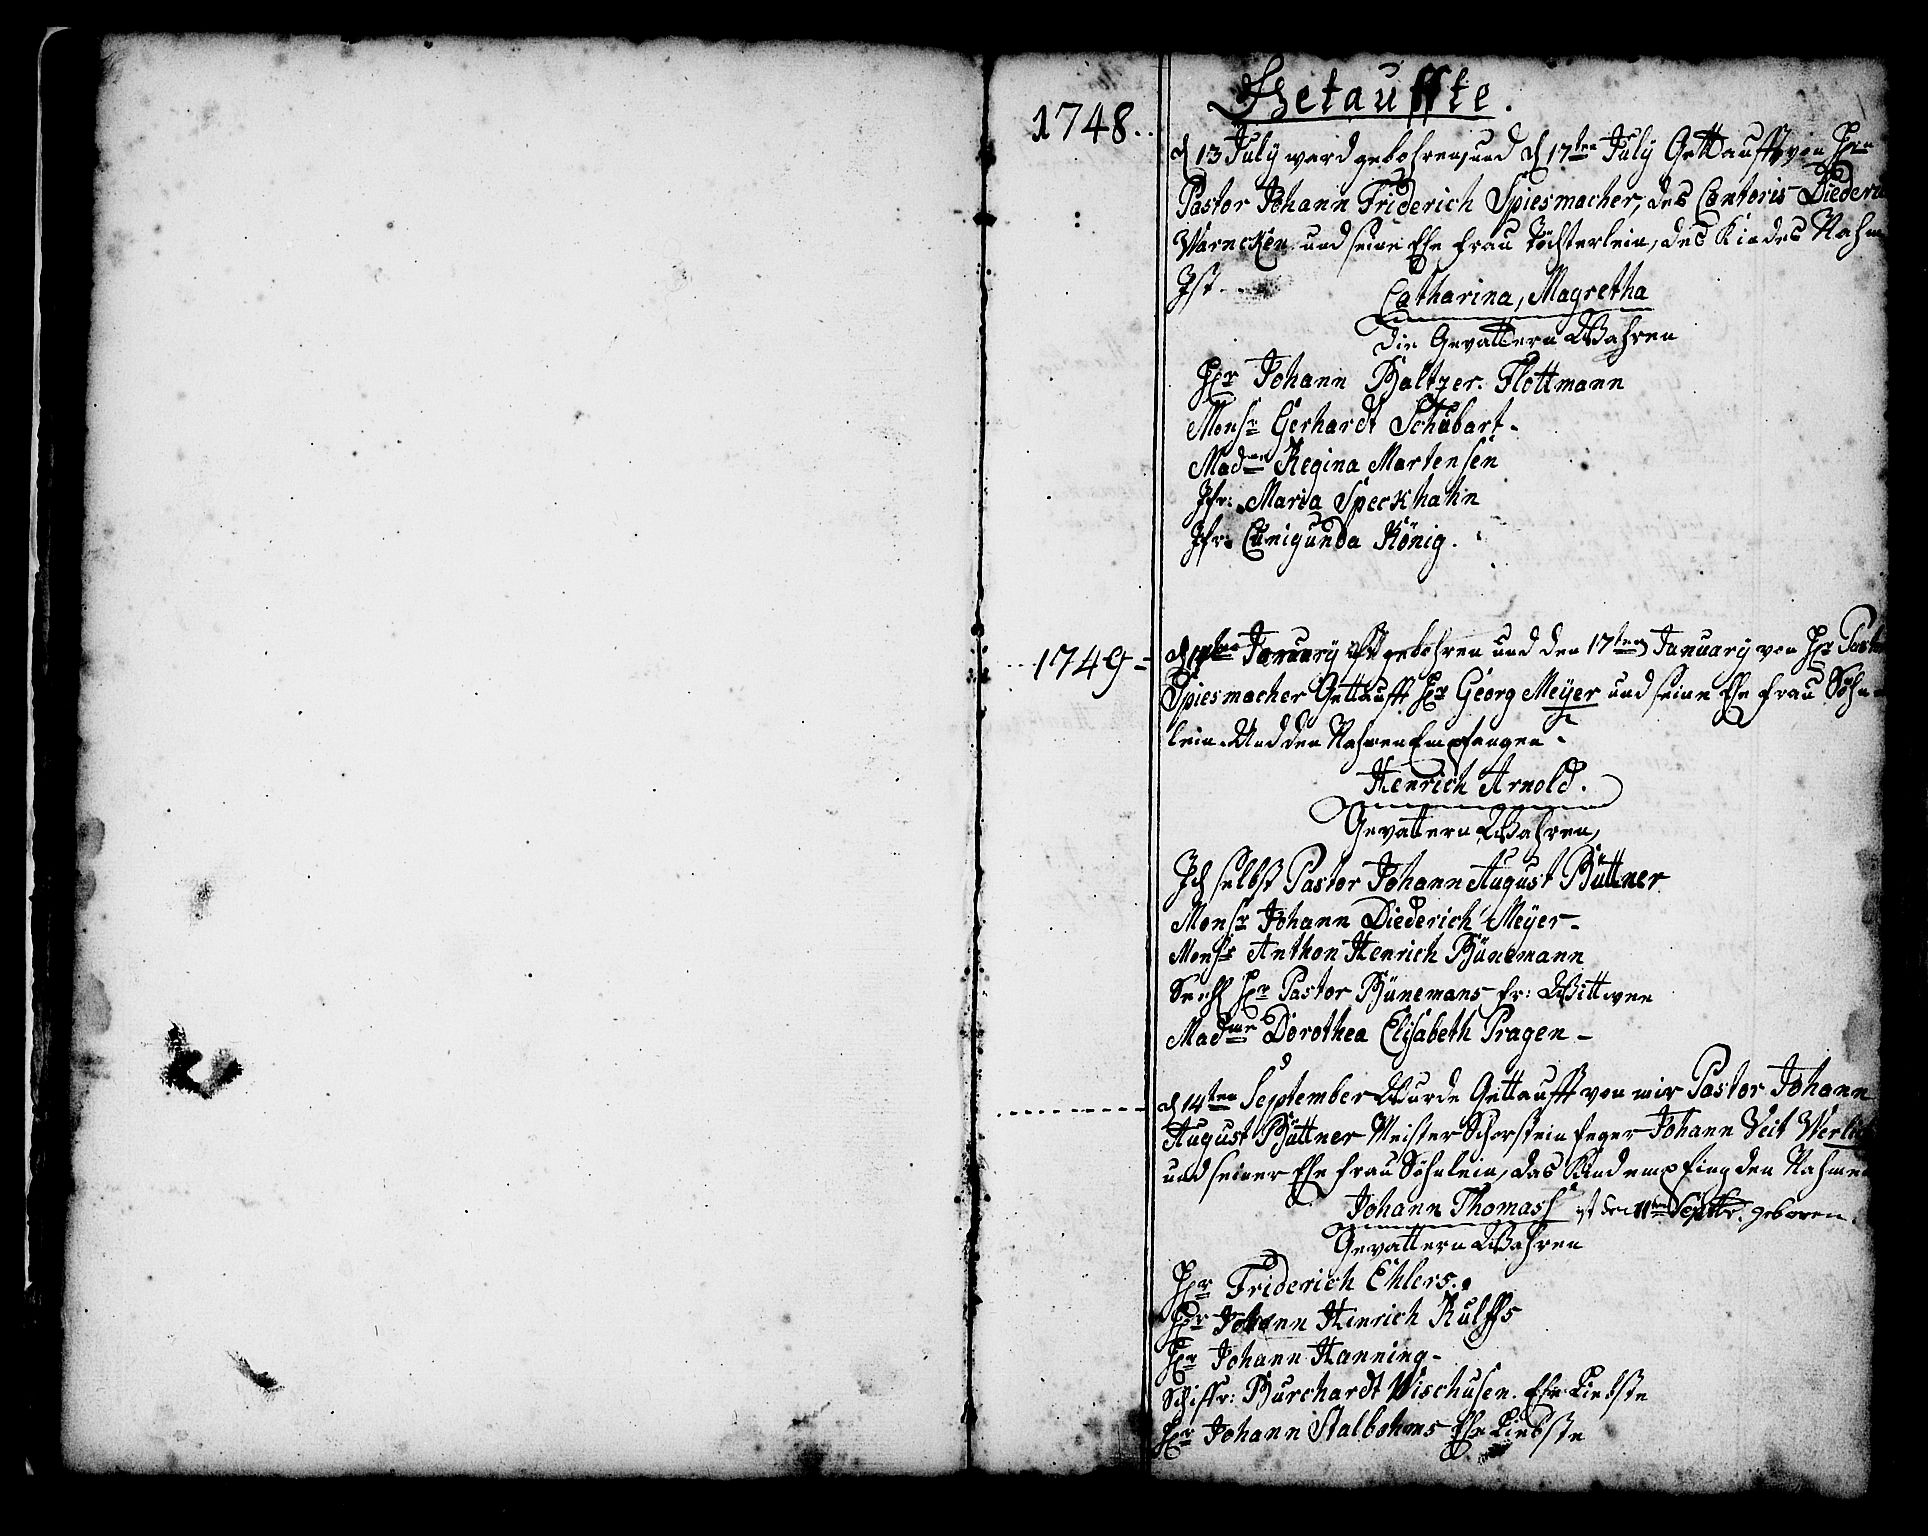 Getauffte.
1748.
d 13 July ward gebohren, und d 17ten July Gettaufft, von Hrn
Pastor Johann Friderich Spiesmacher, des Cantoris Diederi
Warncken und seine Ehe frau töchterlein, des Kindes Nahm
Ist
Catharina, Magretha
Die Gevattern Wahren
Hr Johann Baltzer Flottmann
Monsr Gerhardt Schubart
Madme Regina Martensen
Jfr: Maria Speckhahn
Jfr: Cunigunda König.
1749
d ten January ist gebohren und den 17ten January von Hr Pastor
Spiesmacher Gettaufft Hr Georg Meÿer und seine Ehe frau Söhn
lein. Und den Nahmen Empfangen
Henrich Arnold.
Gevattern Wahren,
Ich selbst Pastor Johann August Büttner
Monsr Johann Diederich Meÿer
Monsr Anthon Henrich Bünemann
Seehl Hr Pastor Bünemans fr: Wittwen
Madme Dorothea Elisabeth Pragen
d 14ten September Wurde Gettaufft von mir Pastor Johann
August Büttner Meister Schorsteinfeger Johann Veit
und seiner Ehe frau Söhnlein, das Kind empfing den Nahmen
Johann Thomass ist den 11ten Septbr. geboren.
Gevattern Wahren
Hr Friderich Ehlers.
Hr Johann Hinrich Rulffs
Hr Johann Hanning
Schiffr: Burchardt Wischusen Ehe Liebste
Hr Johann Stalbohms Ehe Liebste